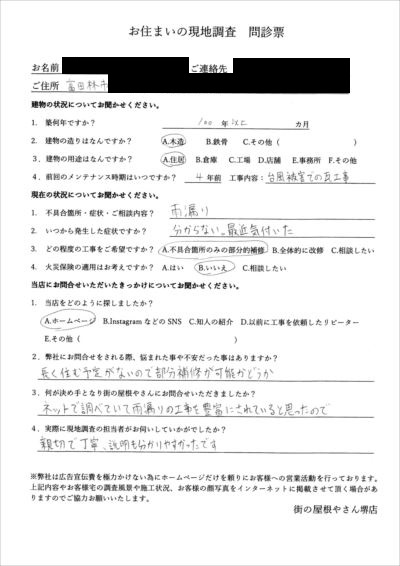 お住まいの現地調査　問診票
お名前　ご連絡先
ご住所　富田林市
建物の状況についてお聞かせください。
1．築何年ですか？　100年以上　年　カ月
2．建物の造りはなんですか？　A.木造　B.鉄骨　C.その他（　）
3．建物の用途はなんですか？　A.住居　B.倉庫　C.工場　D.店舗　E.事務所　F.その他
4．前回のメンテナンス時期はいつですか？　4年前　工事内容：台風被害での瓦工事
現在の状況についてお聞かせください。
1．不具合箇所・症状・ご相談内容？　雨漏り
2．いつから発生した症状ですか？　分からない。最近気付いた
3．どの程度の工事をご希望ですか？　A.不具合箇所のみの部分的補修　B.全体的に改修　C.相談したい
4．火災保険の適用はお考えですか？　A.はい　B.いいえ　C.相談したい
当店にお問合せいただいたきっかけについてお聞かせください。
1．当店をどのように探しましたか？
A.ホームページ　B.Instagram などの SNS　C.知人の紹介　D.以前に工事を依頼したリピーター
E.その他（　）
2．弊社にお問合せをされる際、悩まれた事や不安だった事はありますか？
長く住む予定がないので部分補修が可能かどうか
3．何が決め手となり街の屋根やさんにお問合せいただきましたか？
ネットで調べていて雨漏りの工事を豊富にされていると思ったので
4．実際に現地調査の担当者がお伺いしていかがでしたか？
親切で丁寧、説明も分かりやすかったです
※弊社は広告宣伝費を極力かけない為にホームページだけを頼りにお客様への営業活動を行っております。
上記内容やお客様宅の調査風景や施工状況、お客様の顔写真をインターネットに掲載させて頂く場合があ
りますのでご協力お願いいたします。
街の屋根やさん堺店